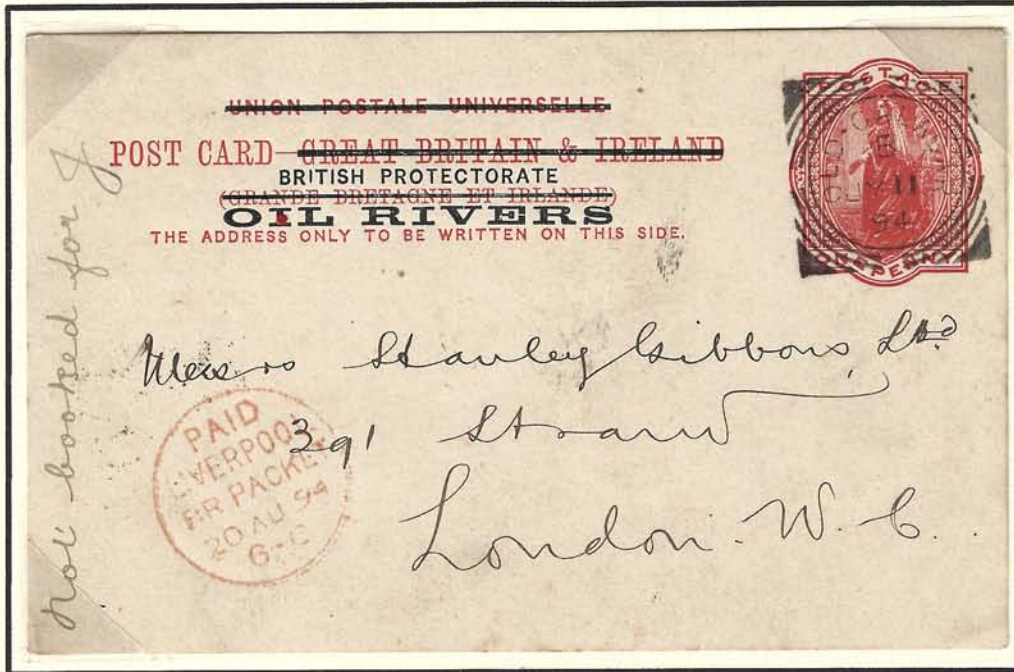 UNION POSTALE UNIVERSELLE
POST CARD GREAT BRITAIN & IRELAND
BRITISH PROTECTORATE
(GRANDE BRETAGNE ET IRLANDE)
OIL RIVERS
THE ADDRESS ONLY TO BE WRITTEN ON THIS SIDE.
POSTAGE
ONE PENNY
11
94
Messrs Stanley Gibbons, Ltd
391 Strand
London. W. C.
PAID
LIVERPOOL
BR PACKET
20 AU 94
not booked for